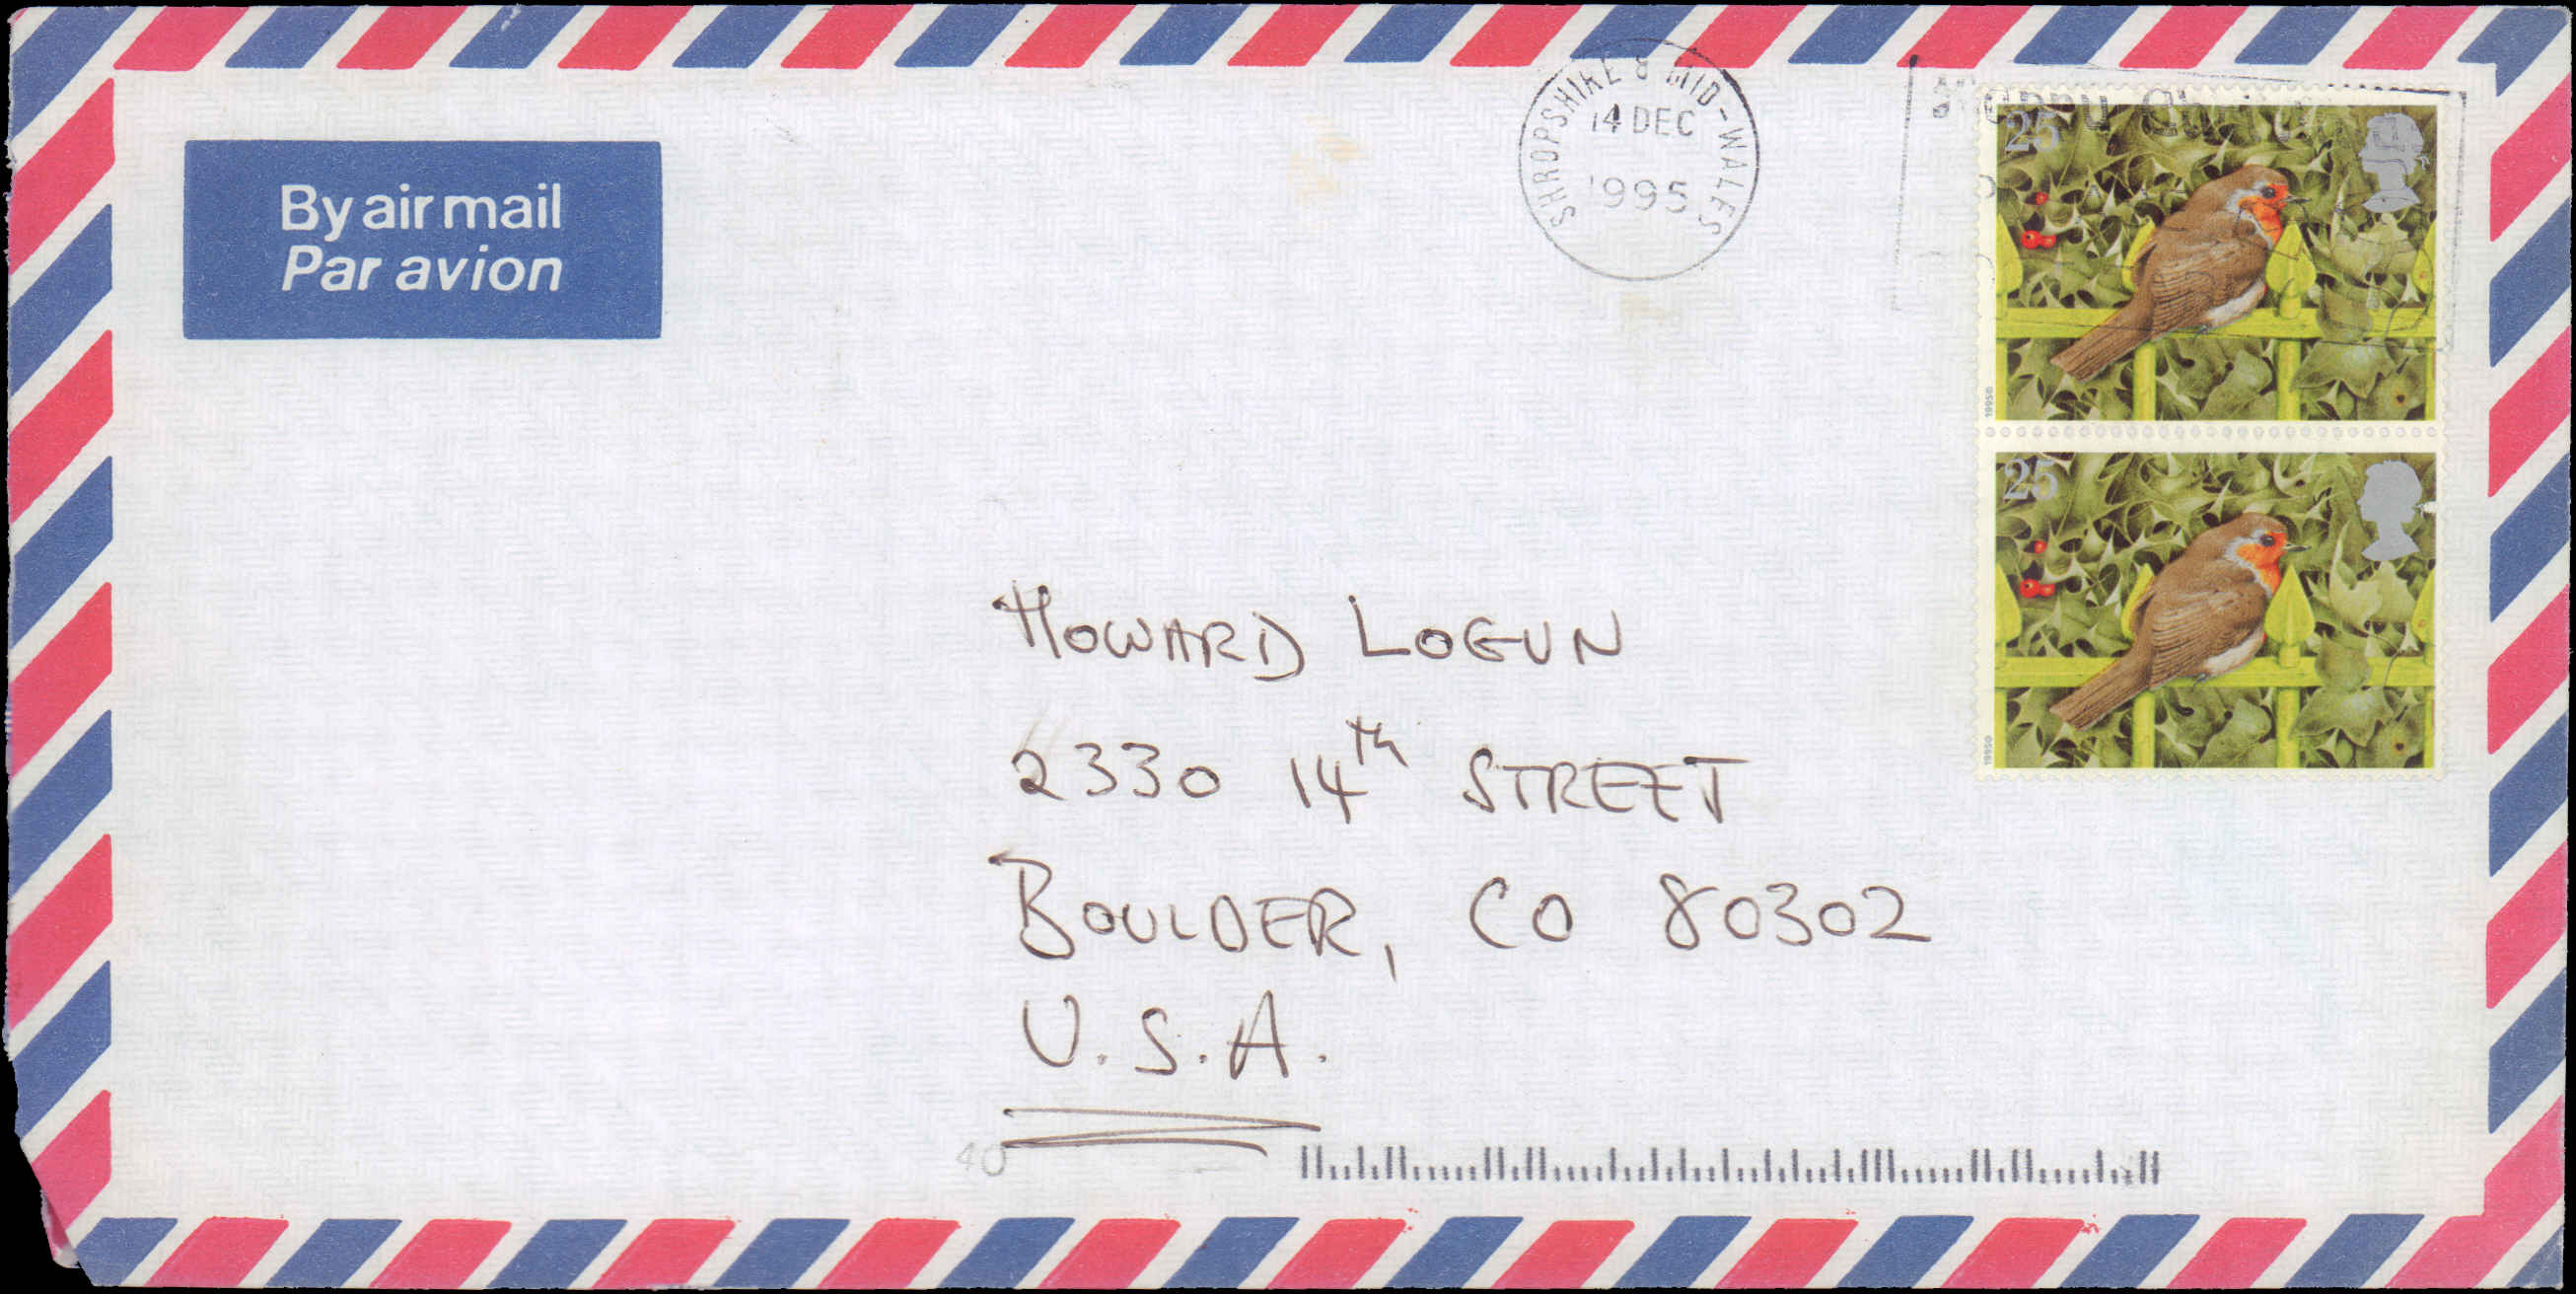 By air mail
Par avion
SHROPSHIRE & MID-WALES
14 DEC
1995
25
1995
25
1995
HOWARD LOGUN
2330 14th STREET
BOULDER, CO 80302
U.S.A.
40